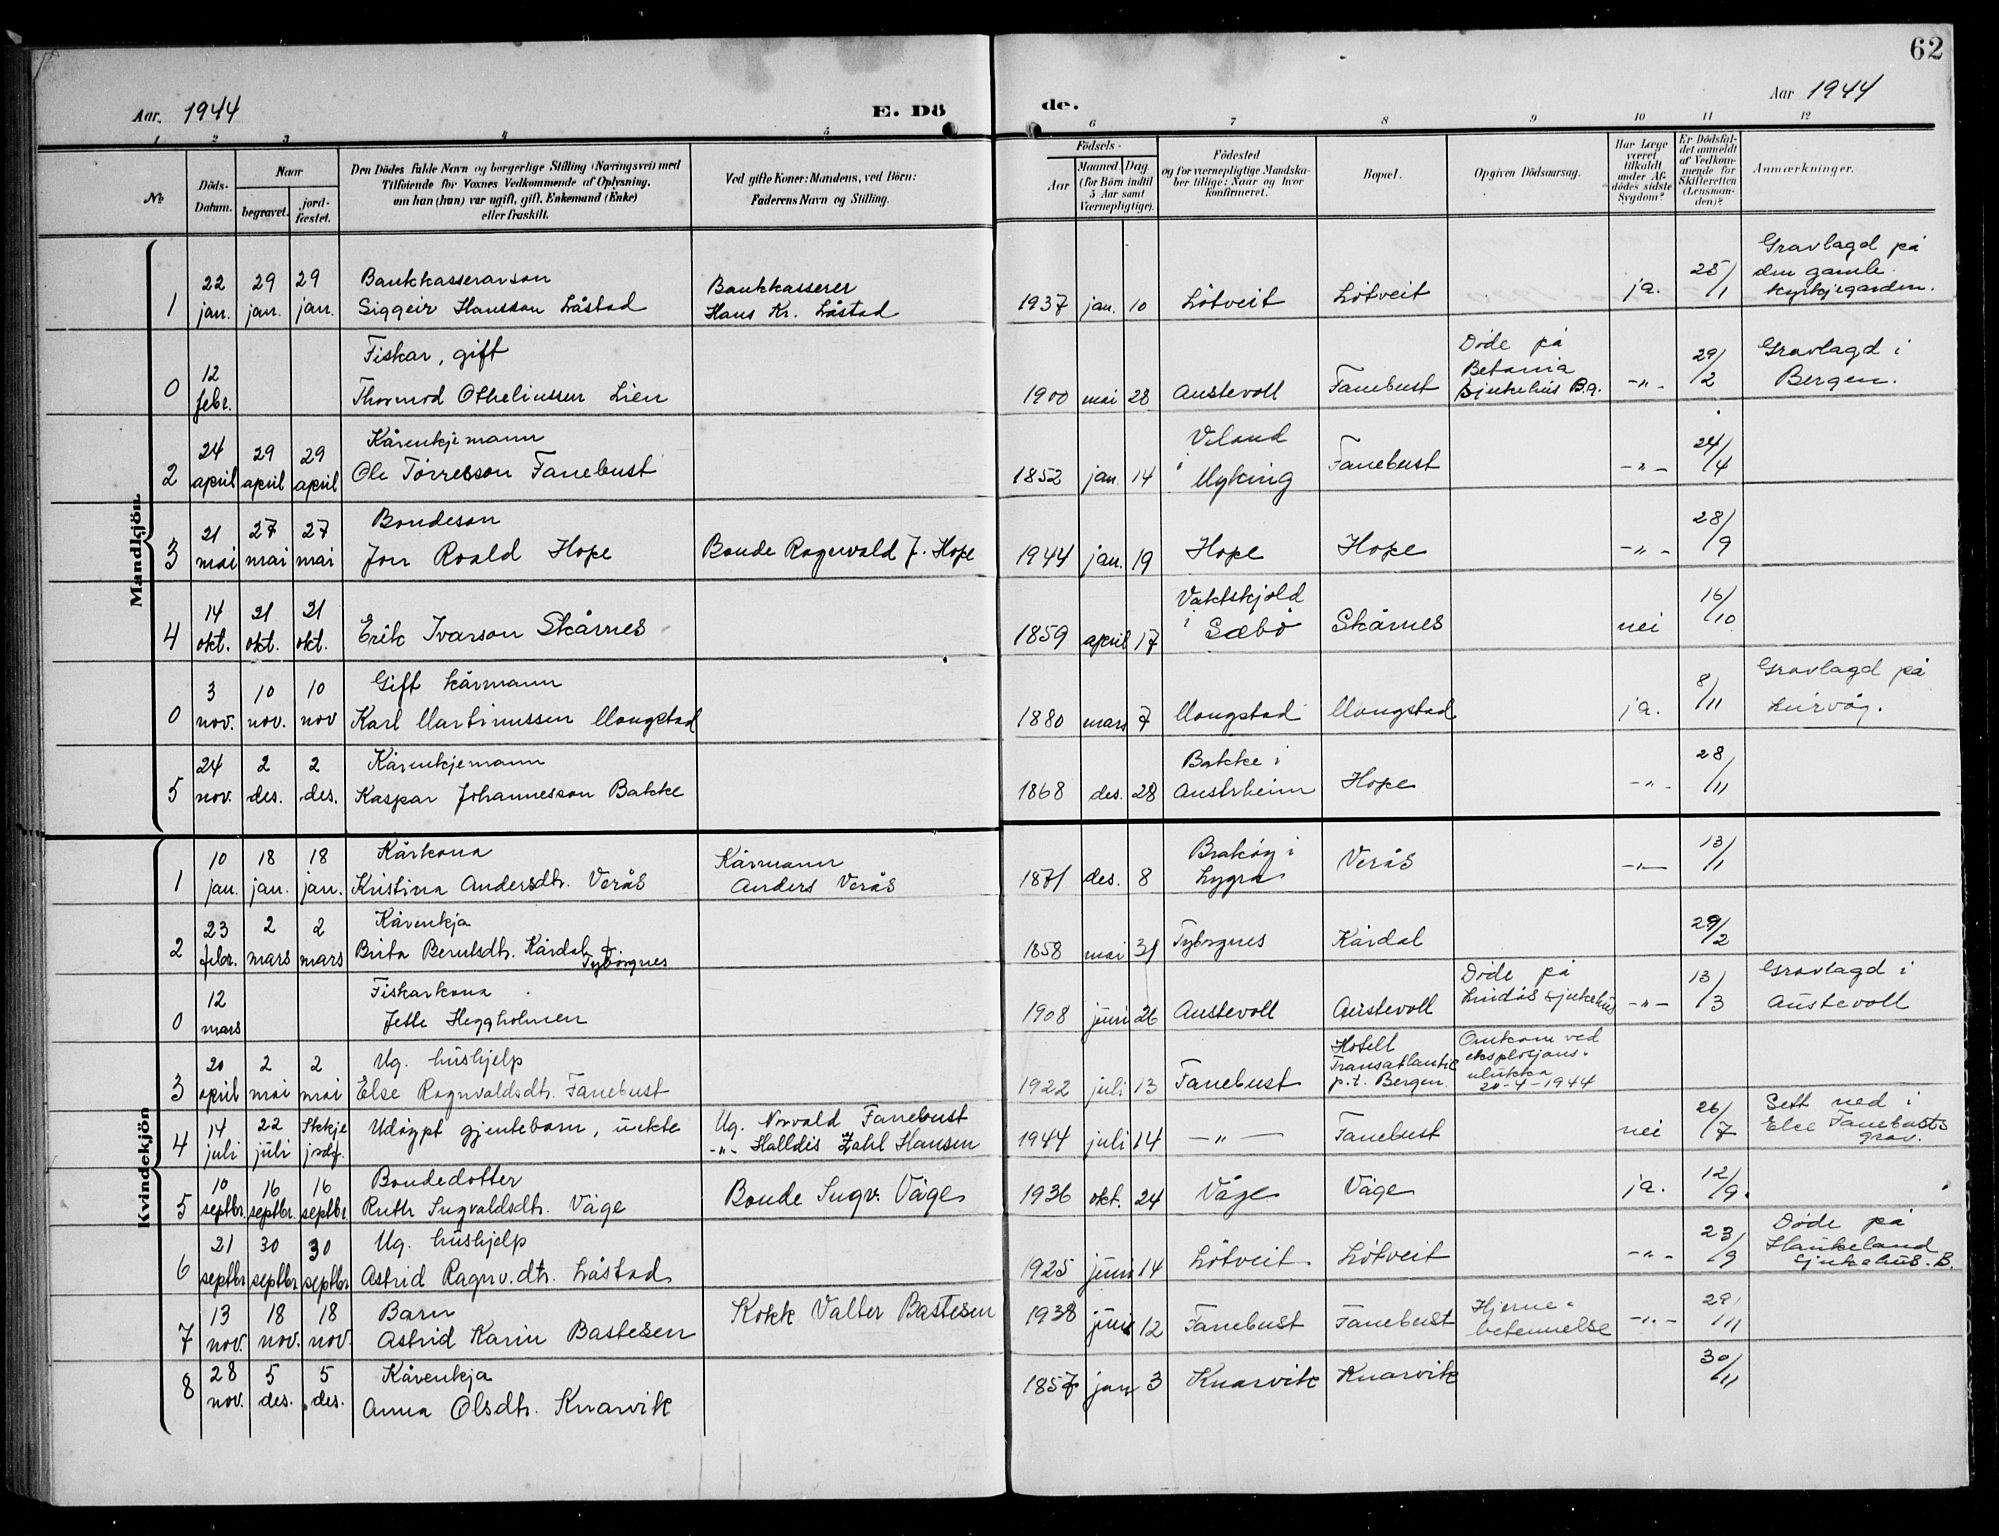 62
Aar. 1944
E. Dö
de.
Aar 1944
1 2 3 4 5 6 7 8 9 10 11 12
No
Döds-Datum.
Naar
begravet.
jordfæstet.
Den Dödes fulde Navn og borgerlige Stilling (Næringsvei) med
Tilföiende for Voxnes Vedkommende af Oplysning,
om han (hun) var ugift, gift, Enkemand (Enke)
eller fraskilt.
Ved gifte Koner: Mandens, ved Börn:
Faderens Navn og Stilling.
Födsels-
Aar
Maaned Dag
(for Börn indtil
5 Aar samt
Værnepligtige).
Födested
og for værnepligtige Mandskaber tillige: Naar og hvor
konfirmeret.
Bopæl.
Opgiven Dödsaarsag.
Har Læge
været
tilkaldt
under Afdödes sidste
Sygdom?
Er Dödsfaldet anmeldt
af Vedkommende for
Skifteretten
(Lensmanden)?
Anmærkninger.
Mandkjön.
1 22 jan. 29 jan. 29 jan. Bankkasserarson
Siggeir Hansson Låstad Bankkasserer
Hans Kr. Låstad 1937 jan. 10 Lötveit Lötveit ja. 25/1 Gravlagd på
den gamle
kyrkjegarden.
0 12 febr. Fiskar, gift
Thormod Otheliussen Lien 1900 mai 28 Austevoll Fanebust Døde på
Betania
Sjukehus B.g. -"- 29/2 Gravlagd i
Bergen.
2 24 april 29 april 29 april Kårenkjemann
Ole Tørresson Fanebust 1852 jan. 14 Uland
i Myking Fanebust -"- 24/4
3 21 mai 27 mai 27 mai Bondeson
Jon Roald Hope Bonde Ragnvald J. Hope 1944 jan. 19 Hope Hope -"- 28/9
4 14 okt. 21 okt. 21 okt. Erik Ivarson Skårnes 1859 april 17 Vaktskjold
i Sæbø Skårnes nei 16/10
0 3 nov. 10 nov. 10 nov Gift kårmann
Karl Martinussen Mongstad 1880 mars 7 Mongstad Mongstad ja. 8/11 Gravlagd på
Leirvåg.
5 24 nov. 2 des. 2 des. Kårenkjemann
Kaspar Johannesson Bakke 1868 des. 28 Bakke i
Austrheim Hope -"- 28/11
Kvindekjön
1 10 jan. 18 jan. 18 jan. Kårkona
Kristina Andersdtr. Verås Kårmann
Anders Verås 1871 des. 8 i
Lygra Verås -"- 13/1
2 23 febr. 2 mars 2 mars Kårenkja
Brita Berntsdtr. Kårdal f.
Tyborgnes 1858 mai 31 Tyborgnes Kårdal 29/2
0 12 mars Fiskarkona
Jette Heggholmen 1908 juni 26 Austevoll Austevoll Døde på
Lindås sjukehus -"- 13/3 Gravlagd i
Austevoll
3 20 april 2 mai 2 mai Ug. hushjelp
Else Ragnvaldsdtr. Fanebust 1922 juli 13 Fanebust Hotell
Transatlantic
p.t. Bergen. Omkom ved
eksplosjons-
ulukka
20-4-1944
4 14 juli 22 juli Ikkje jrdf. Udøypt gjentebarn, uekte Ug. Norvald Fanebust
-"- Halldis Zahl Hansen 1944 juli 14 -"- Fanebust nei 26/7 Sett ned i
Else Fanebusts
grav.
5 10 septbr. 16 septbr. 16 septbr. Bondedotter
Ruth Ingvaldsdtr. Våge Bonde Ingv. Våge 1936 okt. 24 Våge Våge ja. 12/9.
6 21 septbr. 30 septbr 30 septbr Ug. hushjelp
Astrid Ragnv.dtr. Låstad 1925 juni 14 Lötveit Lötveit -"- 23/9 Døde på
Haukeland
Sjukehus. B.
7 13 nov. 18 nov. 18 nov. Barn
Astrid Karin Bastesen Kokk Valter Bastesen 1938 juni 12 Fanebust Fanebust Hjerne-
betennelse -"- 29/11
8 28 nov. 5 des. 5 des. Kårenkja
Anna Olsdtr. Knarvik 1857 jan 3 Knarvik Knarvik 30/11